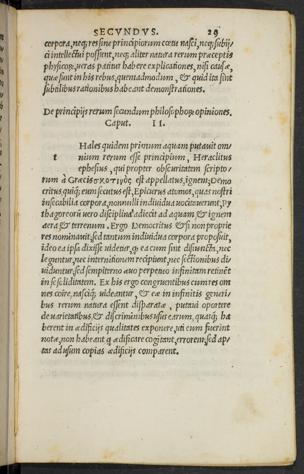 SECVNDVS. 29
corpora, neq; res sine principiorum cœtu nasci, neq; subijci
intellectui possent, neq; aliter natura rerum præceptis
physicoꝝ, ueras patitur habere explicationes, nisi causæ,
quæ sunt in his rebus, quemadmodum, & quid ita sint
subtilibus rationibus habeant demonstrationes.
De principijs rerum secundum philosophoꝝ opiniones.
Caput. II.
t Hales quidem primum aquam putauit om
nium rerum esse principium, Heraclitus
ephesius, qui propter obscuritatem scripto/
rum à Græcis σκοτινὸς est appellatus, ignem, Demo
critus quiq; eum secutus est, Epicurus atomos, quas nostri
insecabilia corpora, nonnulli indiuidua uocitauerunt, Py
thagoreorū uero disciplina adiecit ad aquam & ignem
aera & terrenum. Ergo Democritus & si non proprie
res nominauit, sed tantum indiuidua corpora proposuit,
ideo ea ipsa dixisse uidetur, ꝙ ea cum sint disiuncta, nec
leguntur, nec internitionem recipiunt, nec sectionibus di/
uiduntur, sed sempiterno æuo perpetuo infinitam retinēt
in se soliditatem. Ex his ergo congruentibus cum res om
nes coire, nasciq; uideantur, & eæ in infinitis generi/
bus rerum natura essent disparatæ, putaui oportere
de uarietatibus, & discriminibus usus earum, quasq; ha
berent in ædificijs qualitates exponere, uti cum fuerint
notæ, non habeant ꝗ ædificare cogitant, errorem, sed ap/
tas ad usum copias ædificijs comparent.